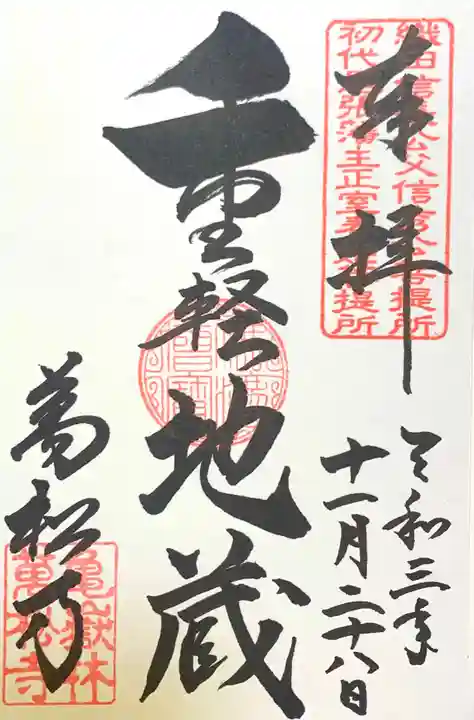 奉拝
織田信長公父信秀公菩提所
初代尾張藩主正室春姫菩提所
令和三年
十一月二十八日
重軽地蔵
萬松寺
亀嶽林
萬松寺